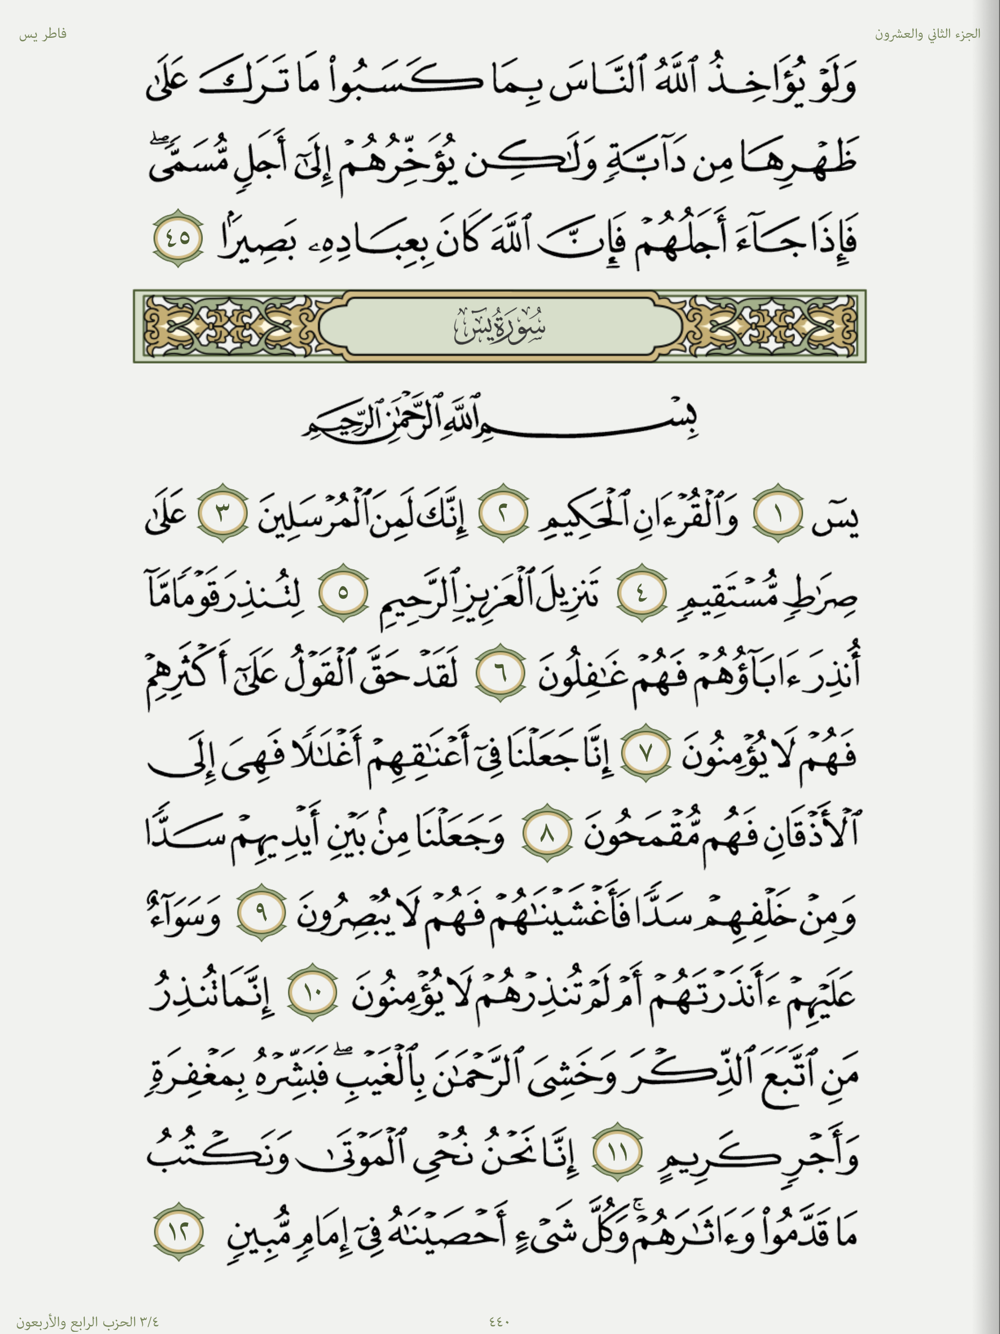 الجزء الثاني والعشرون
فاطر يس
وَلَوْ يُؤَاخِذُ ٱللَّهُ ٱلنَّاسَ بِمَا كَسَبُوا۟ مَا تَرَكَ عَلَىٰ
ظَهْرِهَا مِن دَآبَّةٍ وَلَٰكِن يُؤَخِّرُهُمْ إِلَىٰٓ أَجَلٍ مُّسَمًّى ۖ
فَإِذَا جَآءَ أَجَلُهُمْ فَإِنَّ ٱللَّهَ كَانَ بِعِبَادِهِۦ بَصِيرًۢا ٤٥
سُورَةُ يسٓ
بِسْمِ ٱللَّهِ ٱلرَّحْمَٰنِ ٱلرَّحِيمِ
يسٓ ١ وَٱلْقُرْءَانِ ٱلْحَكِيمِ ٢ إِنَّكَ لَمِنَ ٱلْمُرْسَلِينَ ٣ عَلَىٰ
صِرَٰطٍ مُّسْتَقِيمٍ ٤ تَنزِيلَ ٱلْعَزِيزِ ٱلرَّحِيمِ ٥ لِتُنذِرَ قَوْمًا مَّآ
أُنذِرَ ءَابَآؤُهُمْ فَهُمْ غَٰفِلُونَ ٦ لَقَدْ حَقَّ ٱلْقَوْلُ عَلَىٰٓ أَكْثَرِهِمْ
فَهُمْ لَا يُؤْمِنُونَ ٧ إِنَّا جَعَلْنَا فِىٓ أَعْنَٰقِهِمْ أَغْلَٰلًا فَهِىَ إِلَى
ٱلْأَذْقَانِ فَهُم مُّقْمَحُونَ ٨ وَجَعَلْنَا مِنۢ بَيْنِ أَيْدِيهِمْ سَدًّا
وَمِنْ خَلْفِهِمْ سَدًّا فَأَغْشَيْنَٰهُمْ فَهُمْ لَا يُبْصِرُونَ ٩ وَسَوَآءٌ
عَلَيْهِمْ ءَأَنذَرْتَهُمْ أَمْ لَمْ تُنذِرْهُمْ لَا يُؤْمِنُونَ ١٠ إِنَّمَا تُنذِرُ
مَنِ ٱتَّبَعَ ٱلذِّكْرَ وَخَشِىَ ٱلرَّحْمَٰنَ بِٱلْغَيْبِ ۖ فَبَشِّرْهُ بِمَغْفِرَةٍ
وَأَجْرٍ كَرِيمٍ ١١ إِنَّا نَحْنُ نُحْىِ ٱلْمَوْتَىٰ وَنَكْتُبُ
مَا قَدَّمُوا۟ وَءَاثَٰرَهُمْ ۚ وَكُلَّ شَىْءٍ أَحْصَيْنَٰهُ فِىٓ إِمَامٍ مُّبِينٍ ١٢
٣/٤ الحزب الرابع والأربعون
٤٤٠